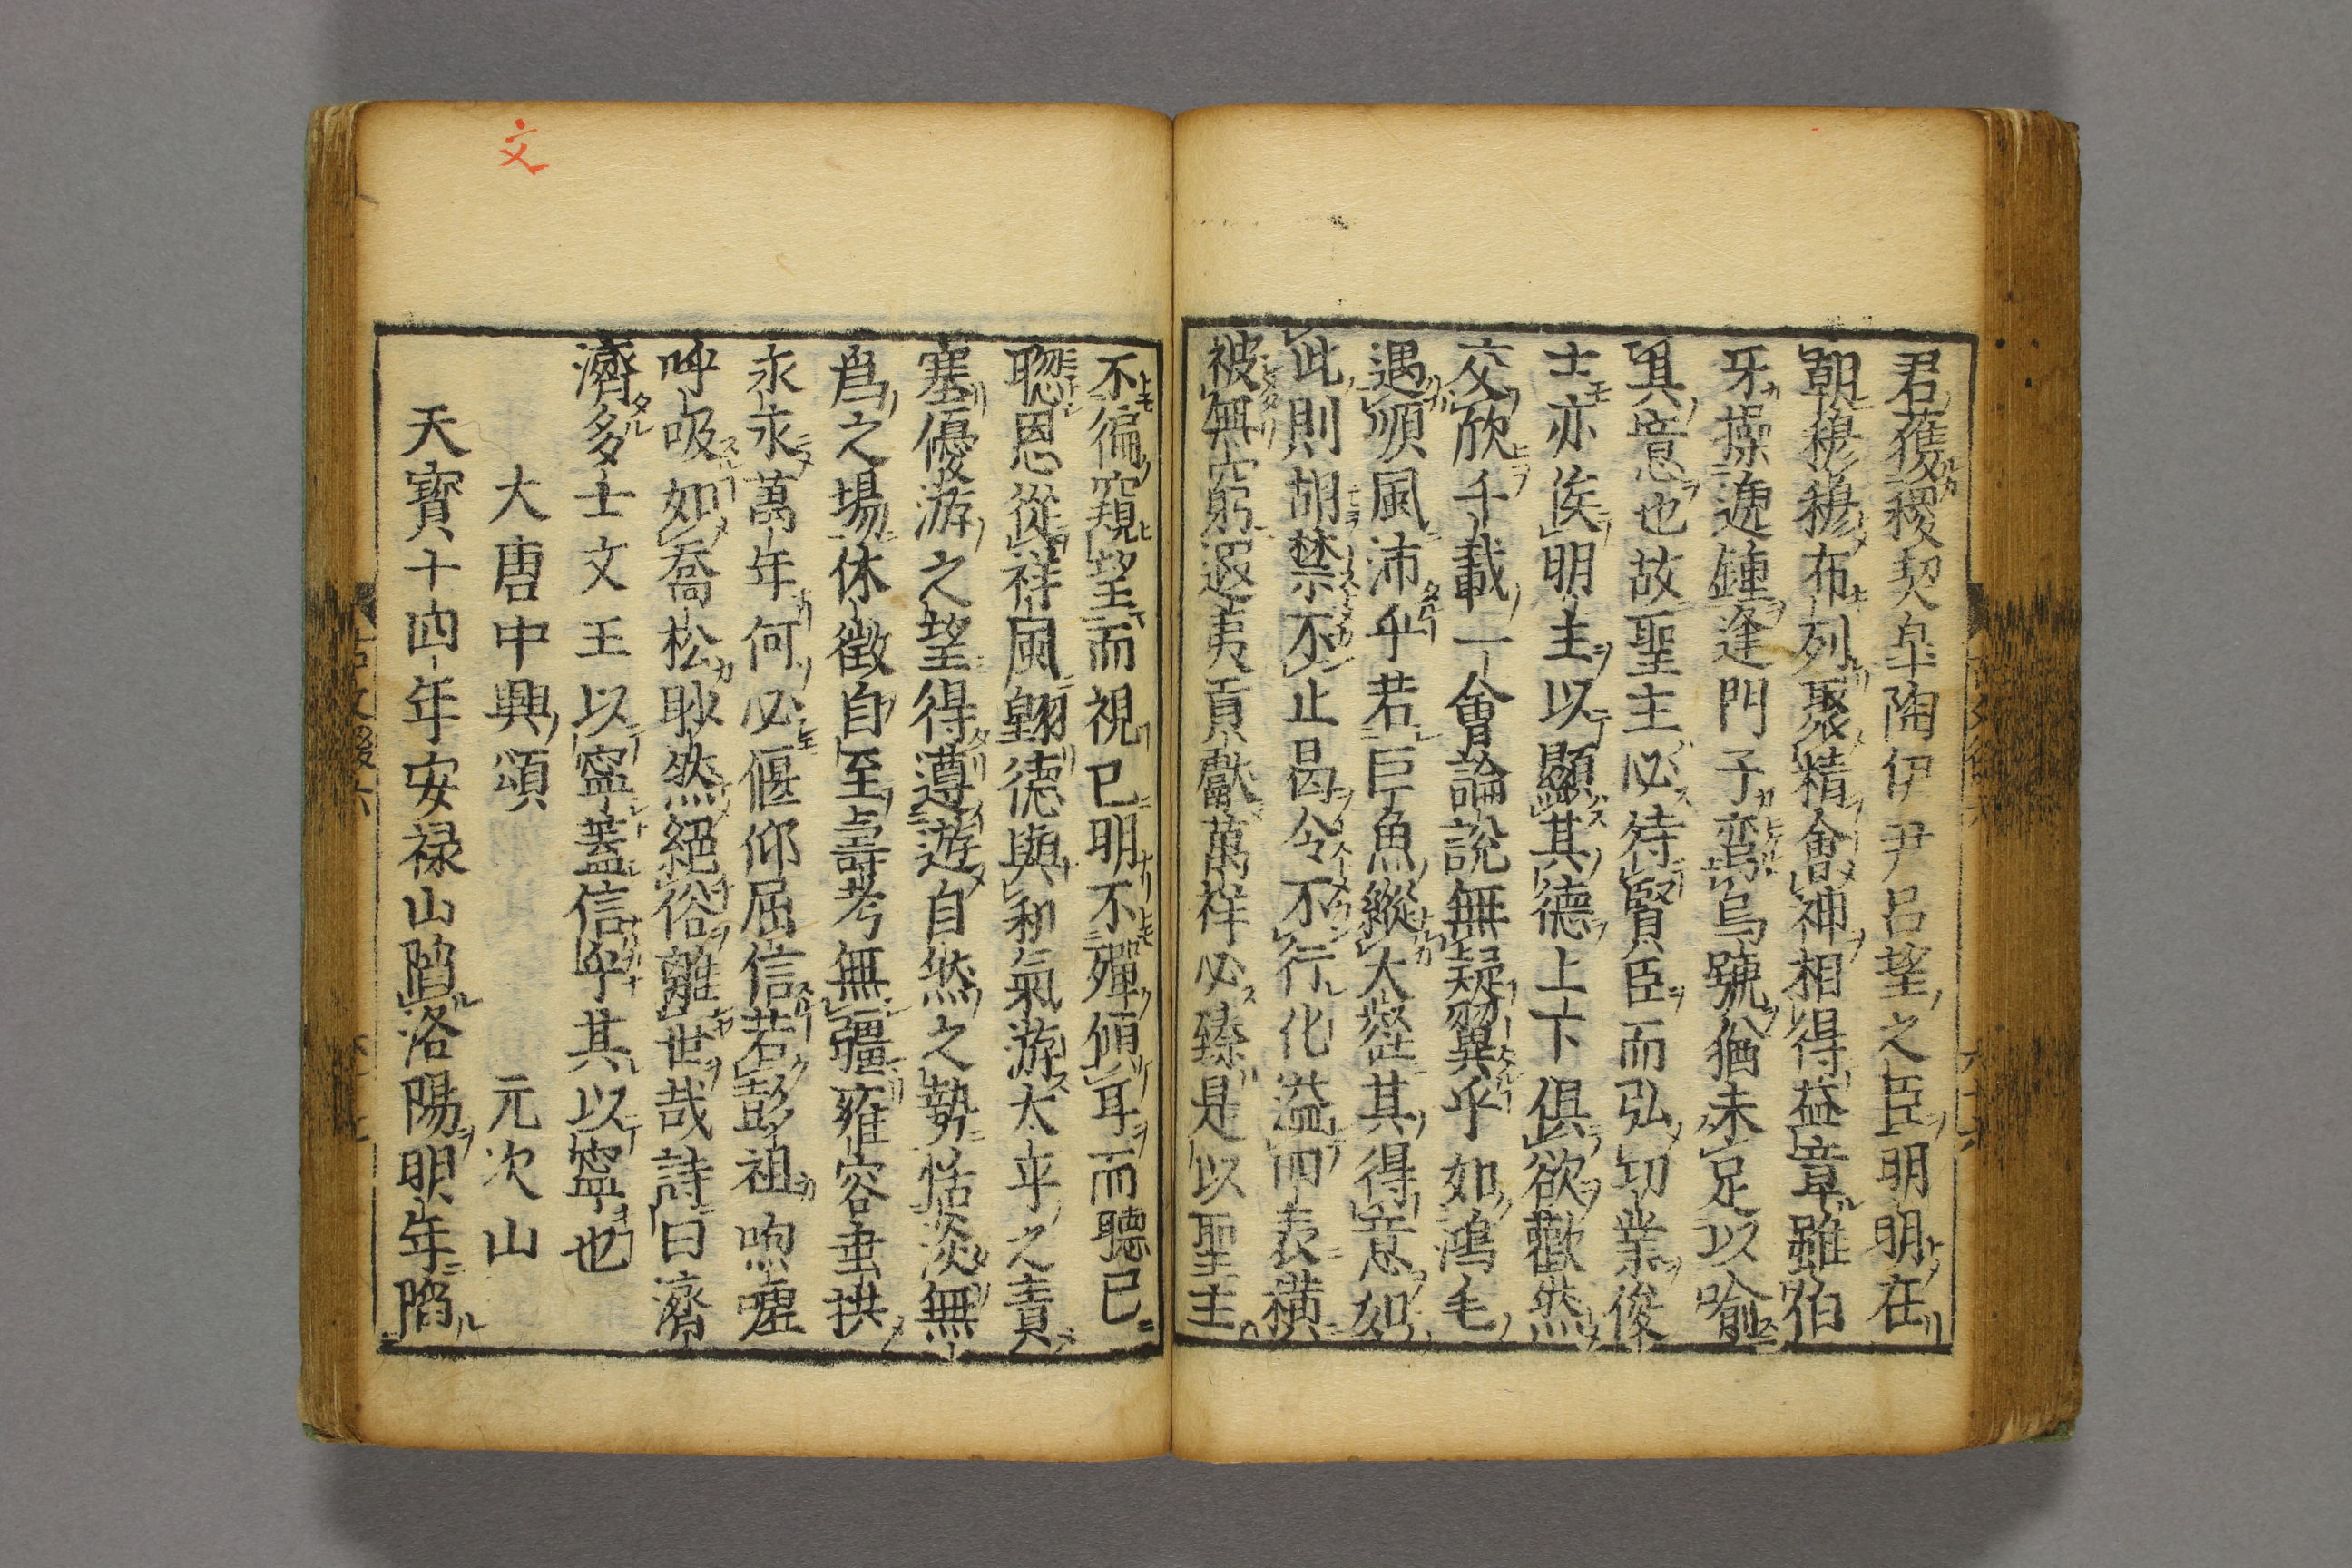 君獲稷契皐陶伊尹呂望之臣明明在
朝穆穆布列聚精會神相得益章雖伯
牙操遞鍾逢門子彎烏號猶未足以喻
其意也故聖主必待賢臣而弘功業俊
士亦俟明主以顯其德上下俱欲歡然
交欣千載一會論說無疑翼乎如鴻毛
遇順風沛乎若巨魚縱大壑其得意如
此則胡禁不止曷令不行化溢四表橫
被無窮遐夷貢獻萬祥必臻是以聖主
不徧窺望而視已明不殫傾耳而聽已
聰恩從祥風翺德與和氣游太平之責
塞優游之望得遵遊自然之勢恬淡無
爲之場休徵自至壽考無疆雍容垂拱
永永萬年何必偃仰屈信若彭祖呴噓
呼吸如喬松眇然絕俗離世哉詩曰濟
濟多士文王以寧蓋信乎其以寧也
大唐中興頌 元次山
天寶十四年安禄山陷洛陽明年陷
文